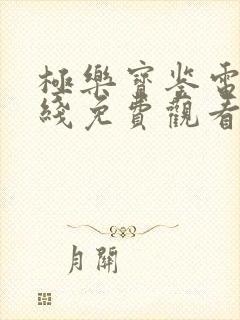 極樂寶鉴電
綫免費觀看
月關